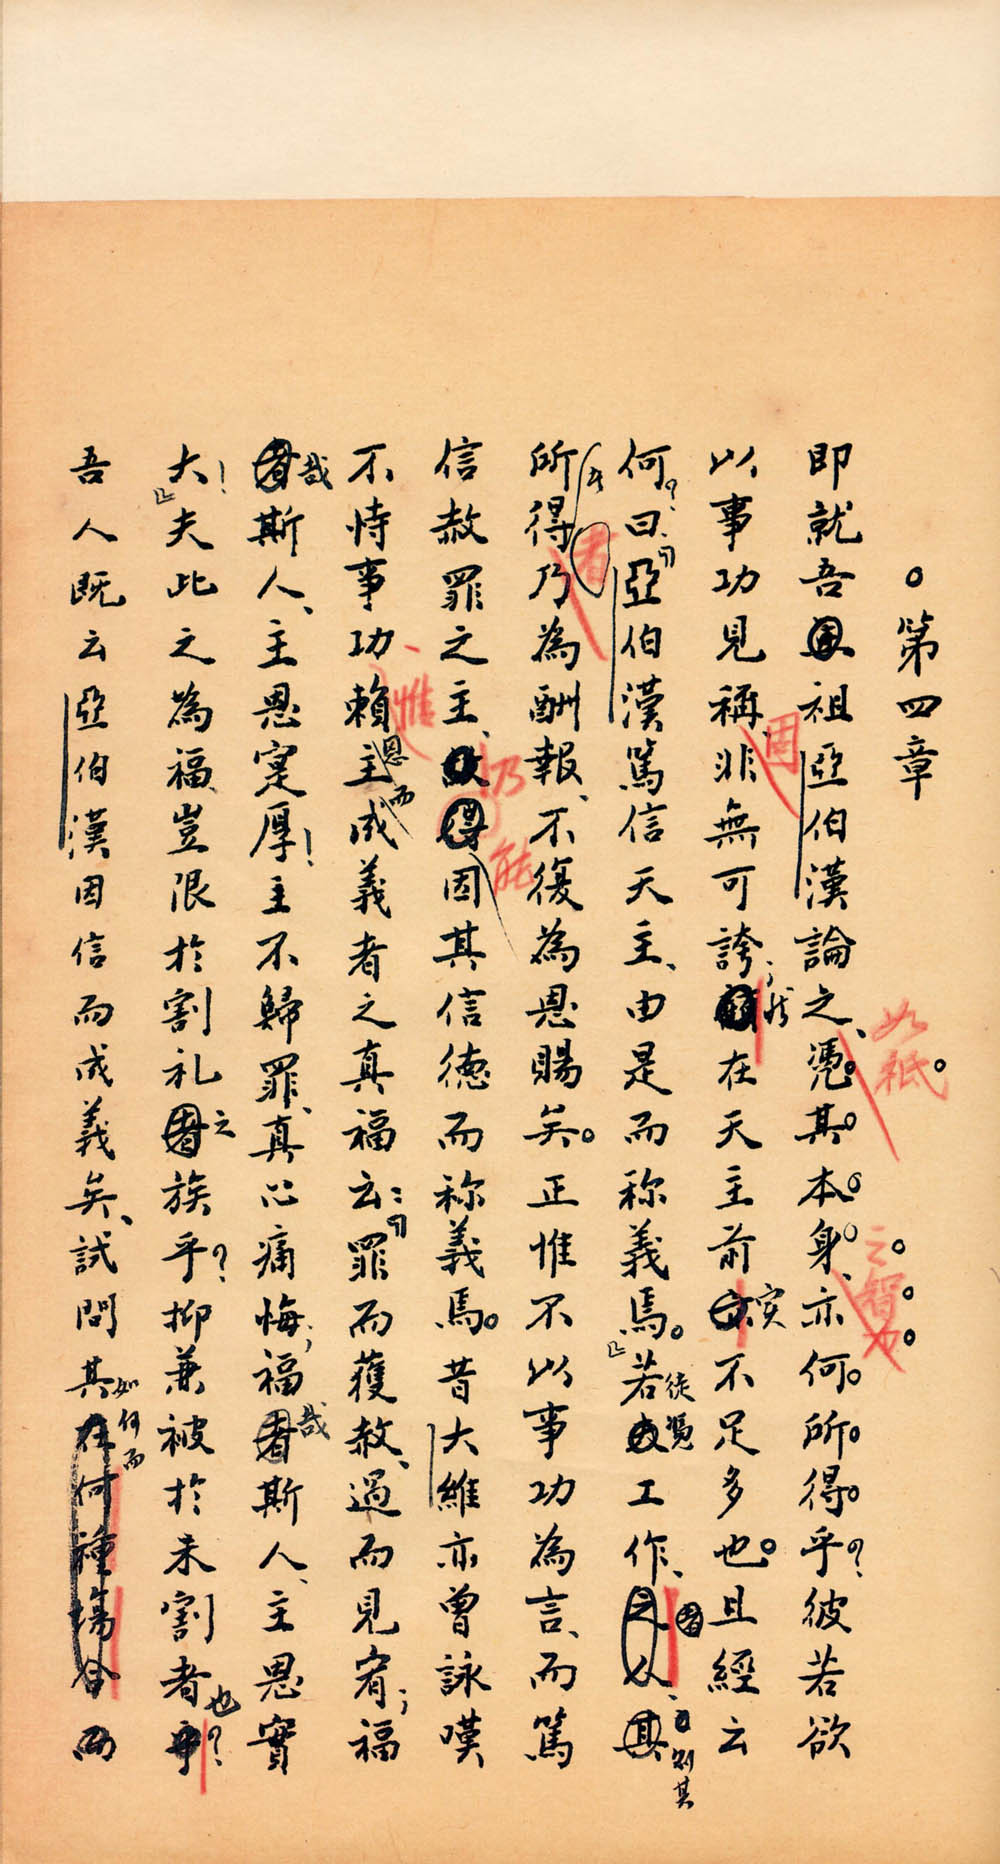 第四章
即就吾祖亞伯漢論之、憑其本身、亦何所得乎?彼若欲
以事功見稱、非無可誇;然在天主前實不足多也。且經云
何?曰、「亞伯漢篤信天主、由是而称義焉。」若徒憑工作、則其
所得乃為酬報、不復為恩賜矣。正惟不以事功為言、而篤
信赦罪之主、因其信德而称義焉。昔大維亦曾詠嘆
不恃事功賴主恩而成義者之真福云:「罪而獲赦、過而見宥;福
哉斯人、主恩寔厚!主不歸罪、真心痛悔;福哉斯人、主恩實
大!」夫此之為福、豈限於割礼之族乎?抑兼被於未割者也?
吾人既云亞伯漢因信而成義矣、試問其如何而
如祇
之智也
因
者
惟
乃能